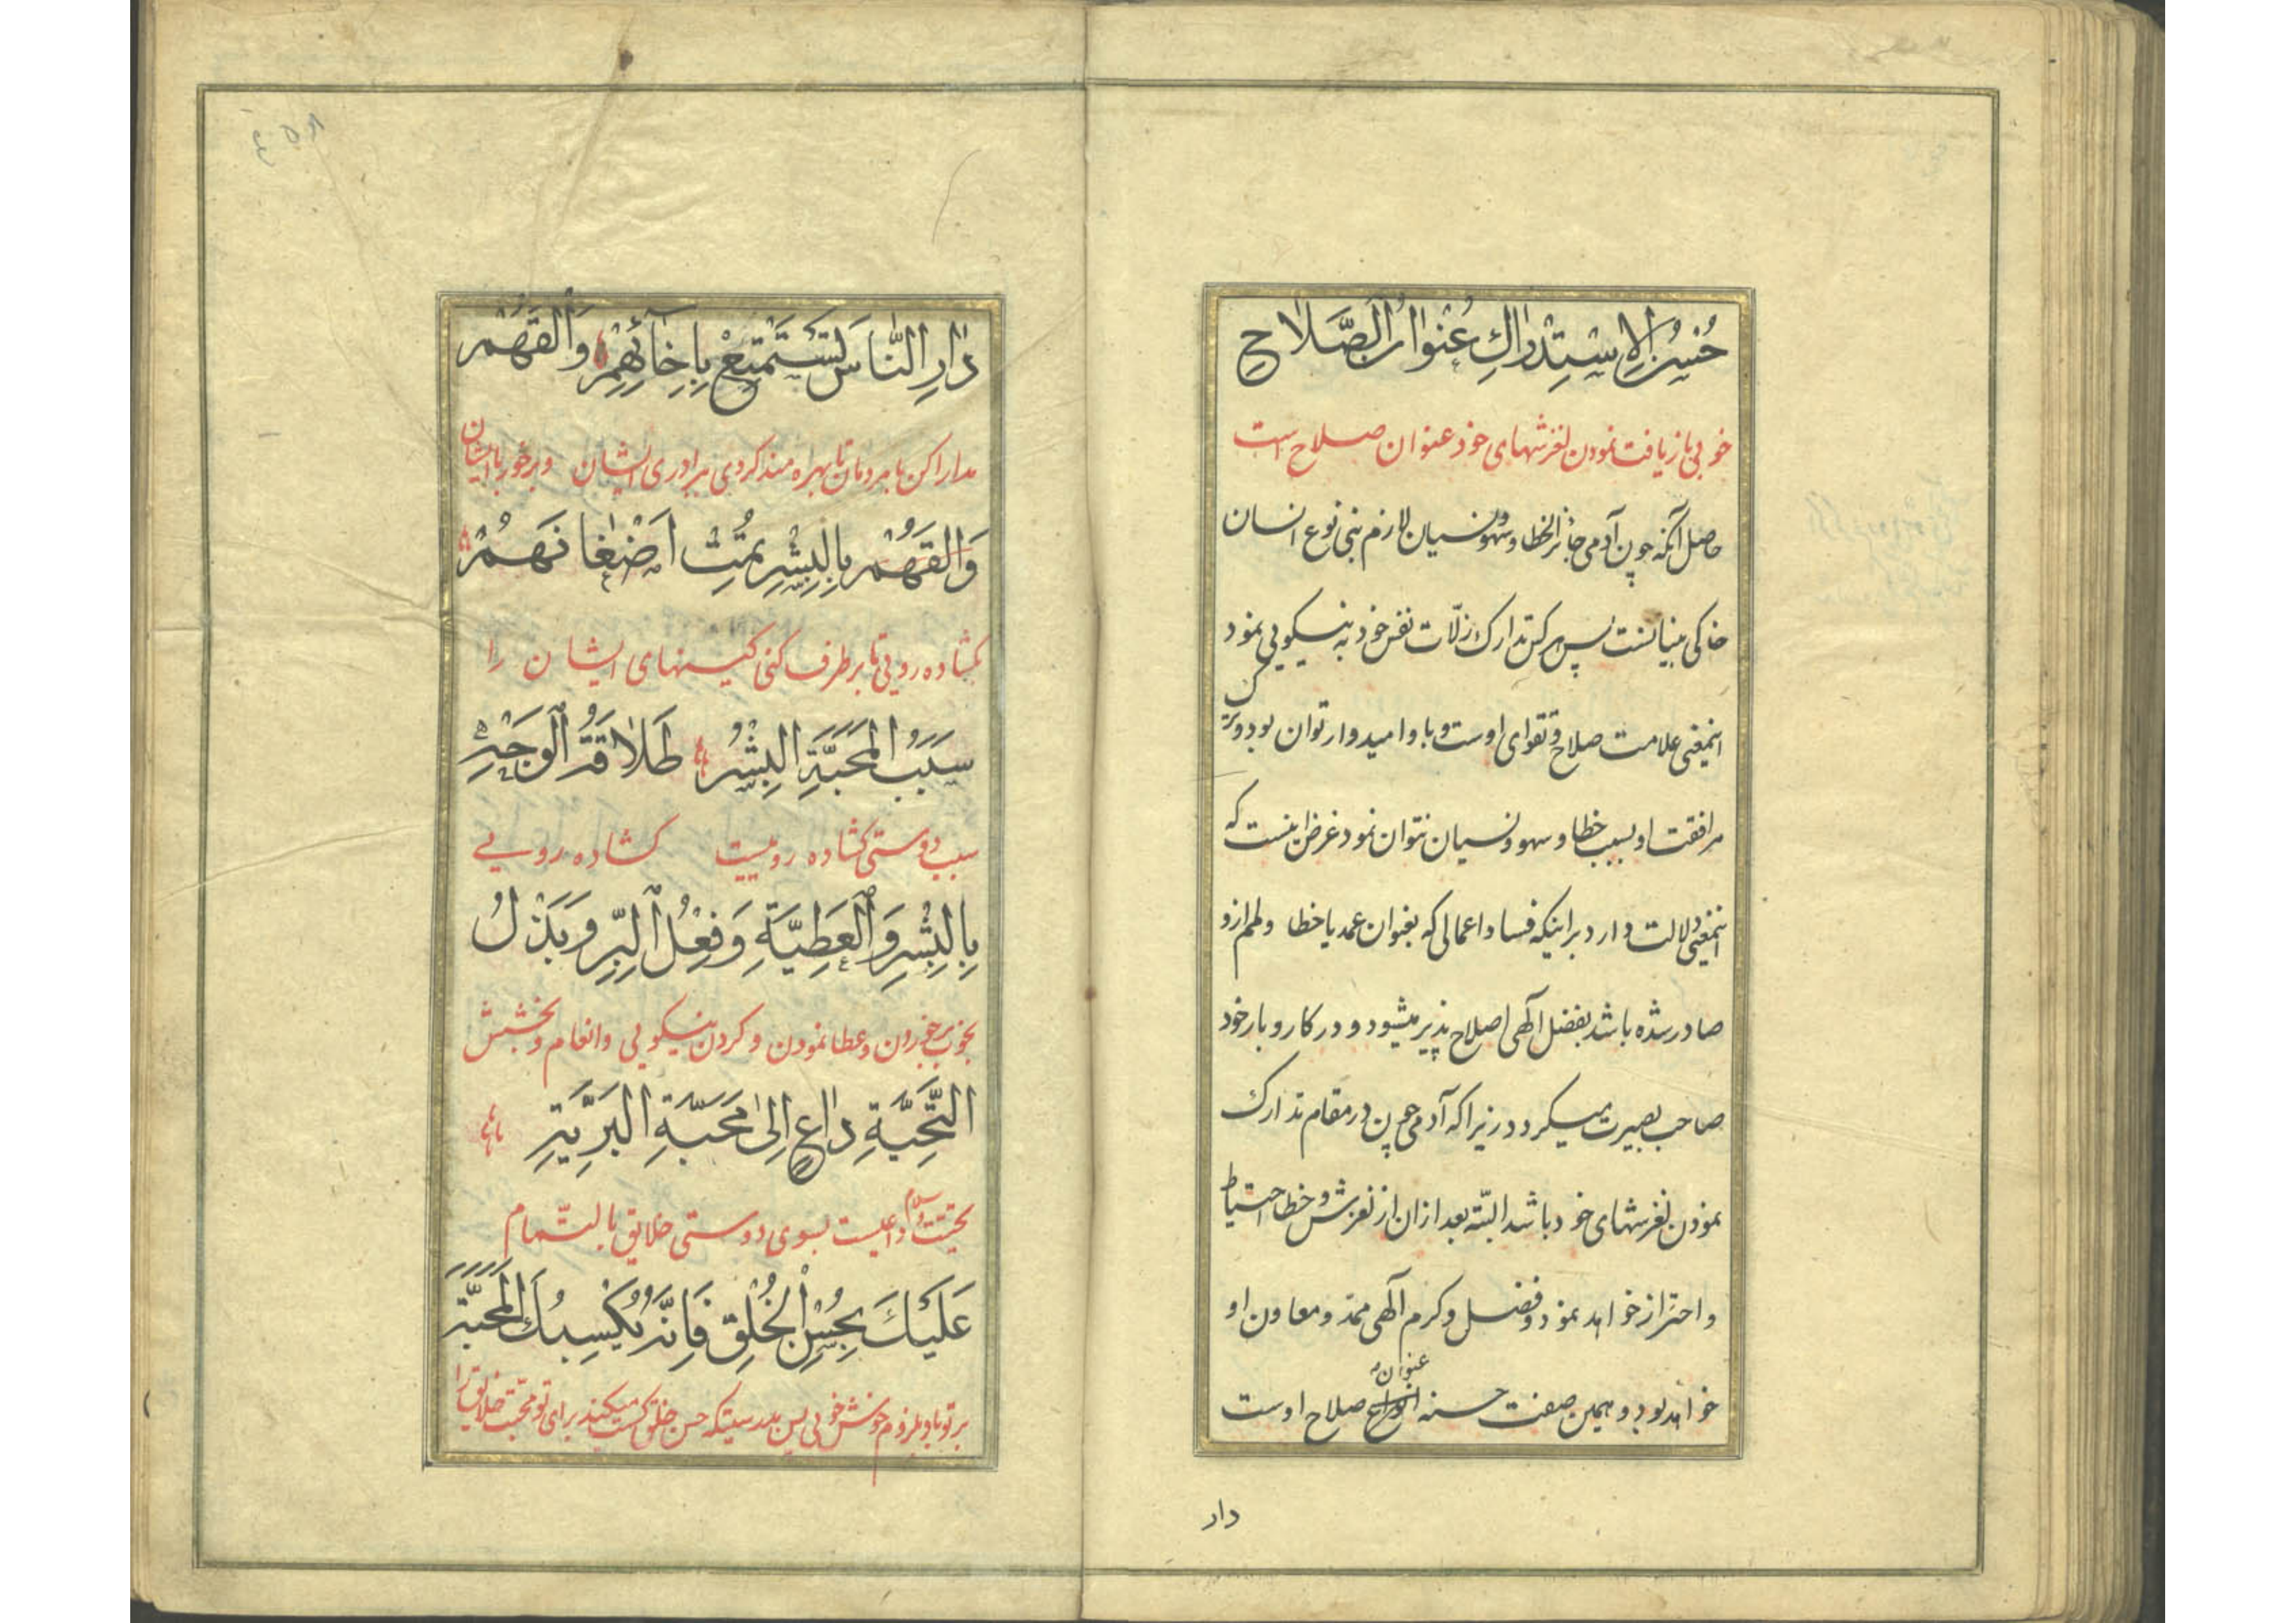 حُسْنُ الاِسْتِدْراكِ عُنْوانُ الصَّلاحِ
خوبی باز یافت نمودن لغزشهای خود عنوان صلاح است
حاصل آنکه چون آدمی جائز الخطا و سهو و نسیان لازم بنی نوع انسان
خاکی بنیانست پس هر کس تدارک زلّات نفس خود به نیکویی نمود
اینمعنی علامت صلاح و تقوای اوست و با و امیدوار توان بود و ترک
مرافقت او بسبب خطا و سهو و نسیان نتوان نمود غرض اینست که
اینمعنی دلالت دارد بر اینکه فساد اعمالی که بعنوان عمد یا خطا و ظلم ازو
صادر شده باشد بفضل الهی اصلاح پذیر میشود و در کار و بار خود
صاحب بصیرت میگردد زیرا که آدمی چون در مقام تدارک
نمودن لغزشهای خود باشد البتّه بعد ازان از لغزش و خطا احتیاط
و احتراز خواهد نمود و فضل و کرم الهی ممد و معاون او
عنوان
خواهد بود و همین صفت حسنه صلاح اوست
دار
دارِ النّاسَ تَسْتَمْتِعْ بِاِخائِهِمْ وَالْقَهُمْ
مدارا کن با مردمان تا بهره مند کردی ببرادری ایشان و برخور با ایشان
وَالْقَهُمْ بِالْبِشْرِ تُمِتْ اَضْغانَهُمْ
بکشاده رویی تا بر طرف کنی کینهای ایشان را
سَبَبُ الْمَحَبَّةِ الْبِشْرُ طَلاقَةُ الْوَجْهِ
سبب دوستی کشاده روییست کشاده رویی
بِالْبِشْرِ وَالْعَطِيَّةِ وَفِعْلُ الْبِرِّ وَبَذْلُ
بخوب برخوردن و عطا نمودن و کردن نیکویی و انعام و بخشش
التَّحِيَّةِ داعٍ اِلىٰ مَحَبَّةِ الْبَرِيَّةِ
تحیّت و سلام داعیست بسوی دوستی خلایق بالتّمام
عَلَيْكَ بِحُسْنِ الْخُلْقِ فَاِنَّهُ يُكْسِبُكَ الْمَحَبَّةَ
بر تو باد بلزوم خوش خویی پس بدرستیکه حسن خلق کسب میکند برای تو محبّت خلایق را